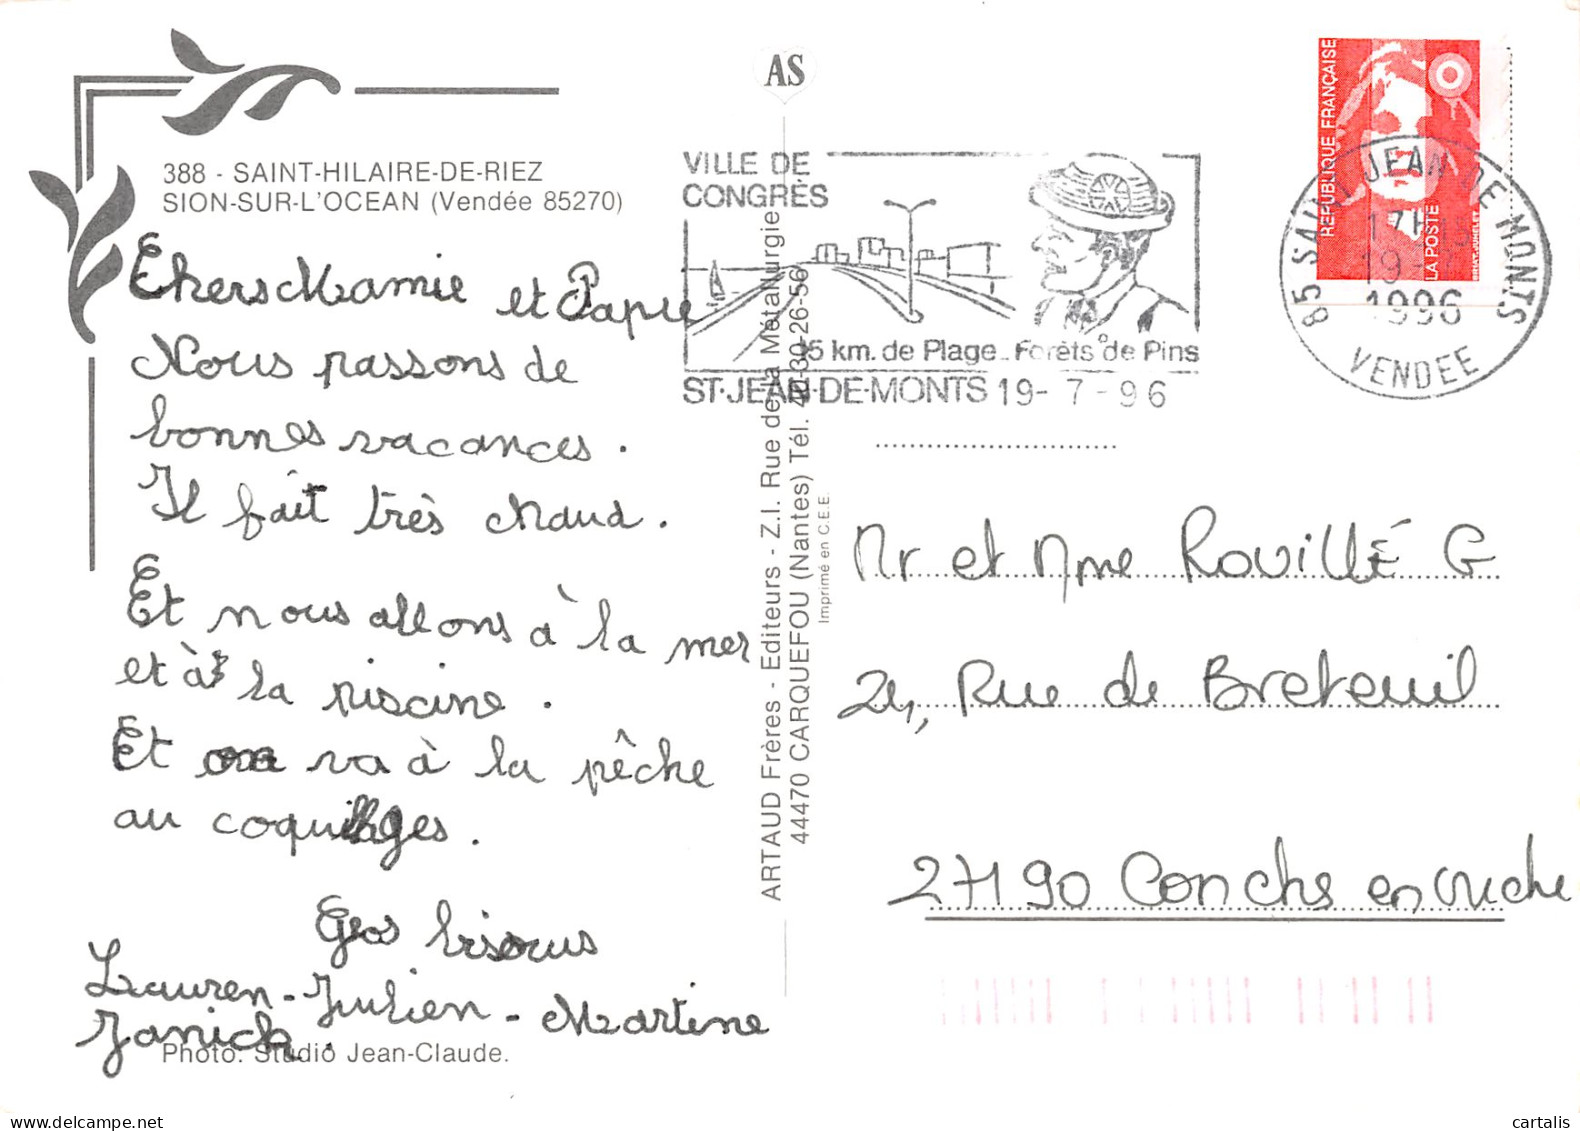 AS
388 - SAINT-HILAIRE-DE-RIEZ
SION-SUR-L'OCEAN (Vendée 85270)
Chers Mamie et Papie
Nous passons de
bonnes vacances.
Il fait très chaud.
Et nous allons à la mer
et à la piscine.
Et on va à la pêche
au coquillages.
Gros bisous
Lauren - Julien - Martine
Janick.
Photo: Studio Jean-Claude.
ARTAUD Frères - Editeurs - Z.I. Rue de la Métallurgie
44470 CARQUEFOU (Nantes) Tél. 40-30-26-56
Imprimé en C.E.E.
VILLE DE
CONGRÈS
15 km. de Plage - Forêts de Pins
ST-JEAN-DE-MONTS 19-7-96
REPUBLIQUE FRANÇAISE
LA POSTE
85 SAINT JEAN DE MONTS
17H15
19-7
1996
VENDEE
Mr et Mme ROUILLÉ G
24, Rue de Breteuil
27190 Conches en Ouche
cartalis